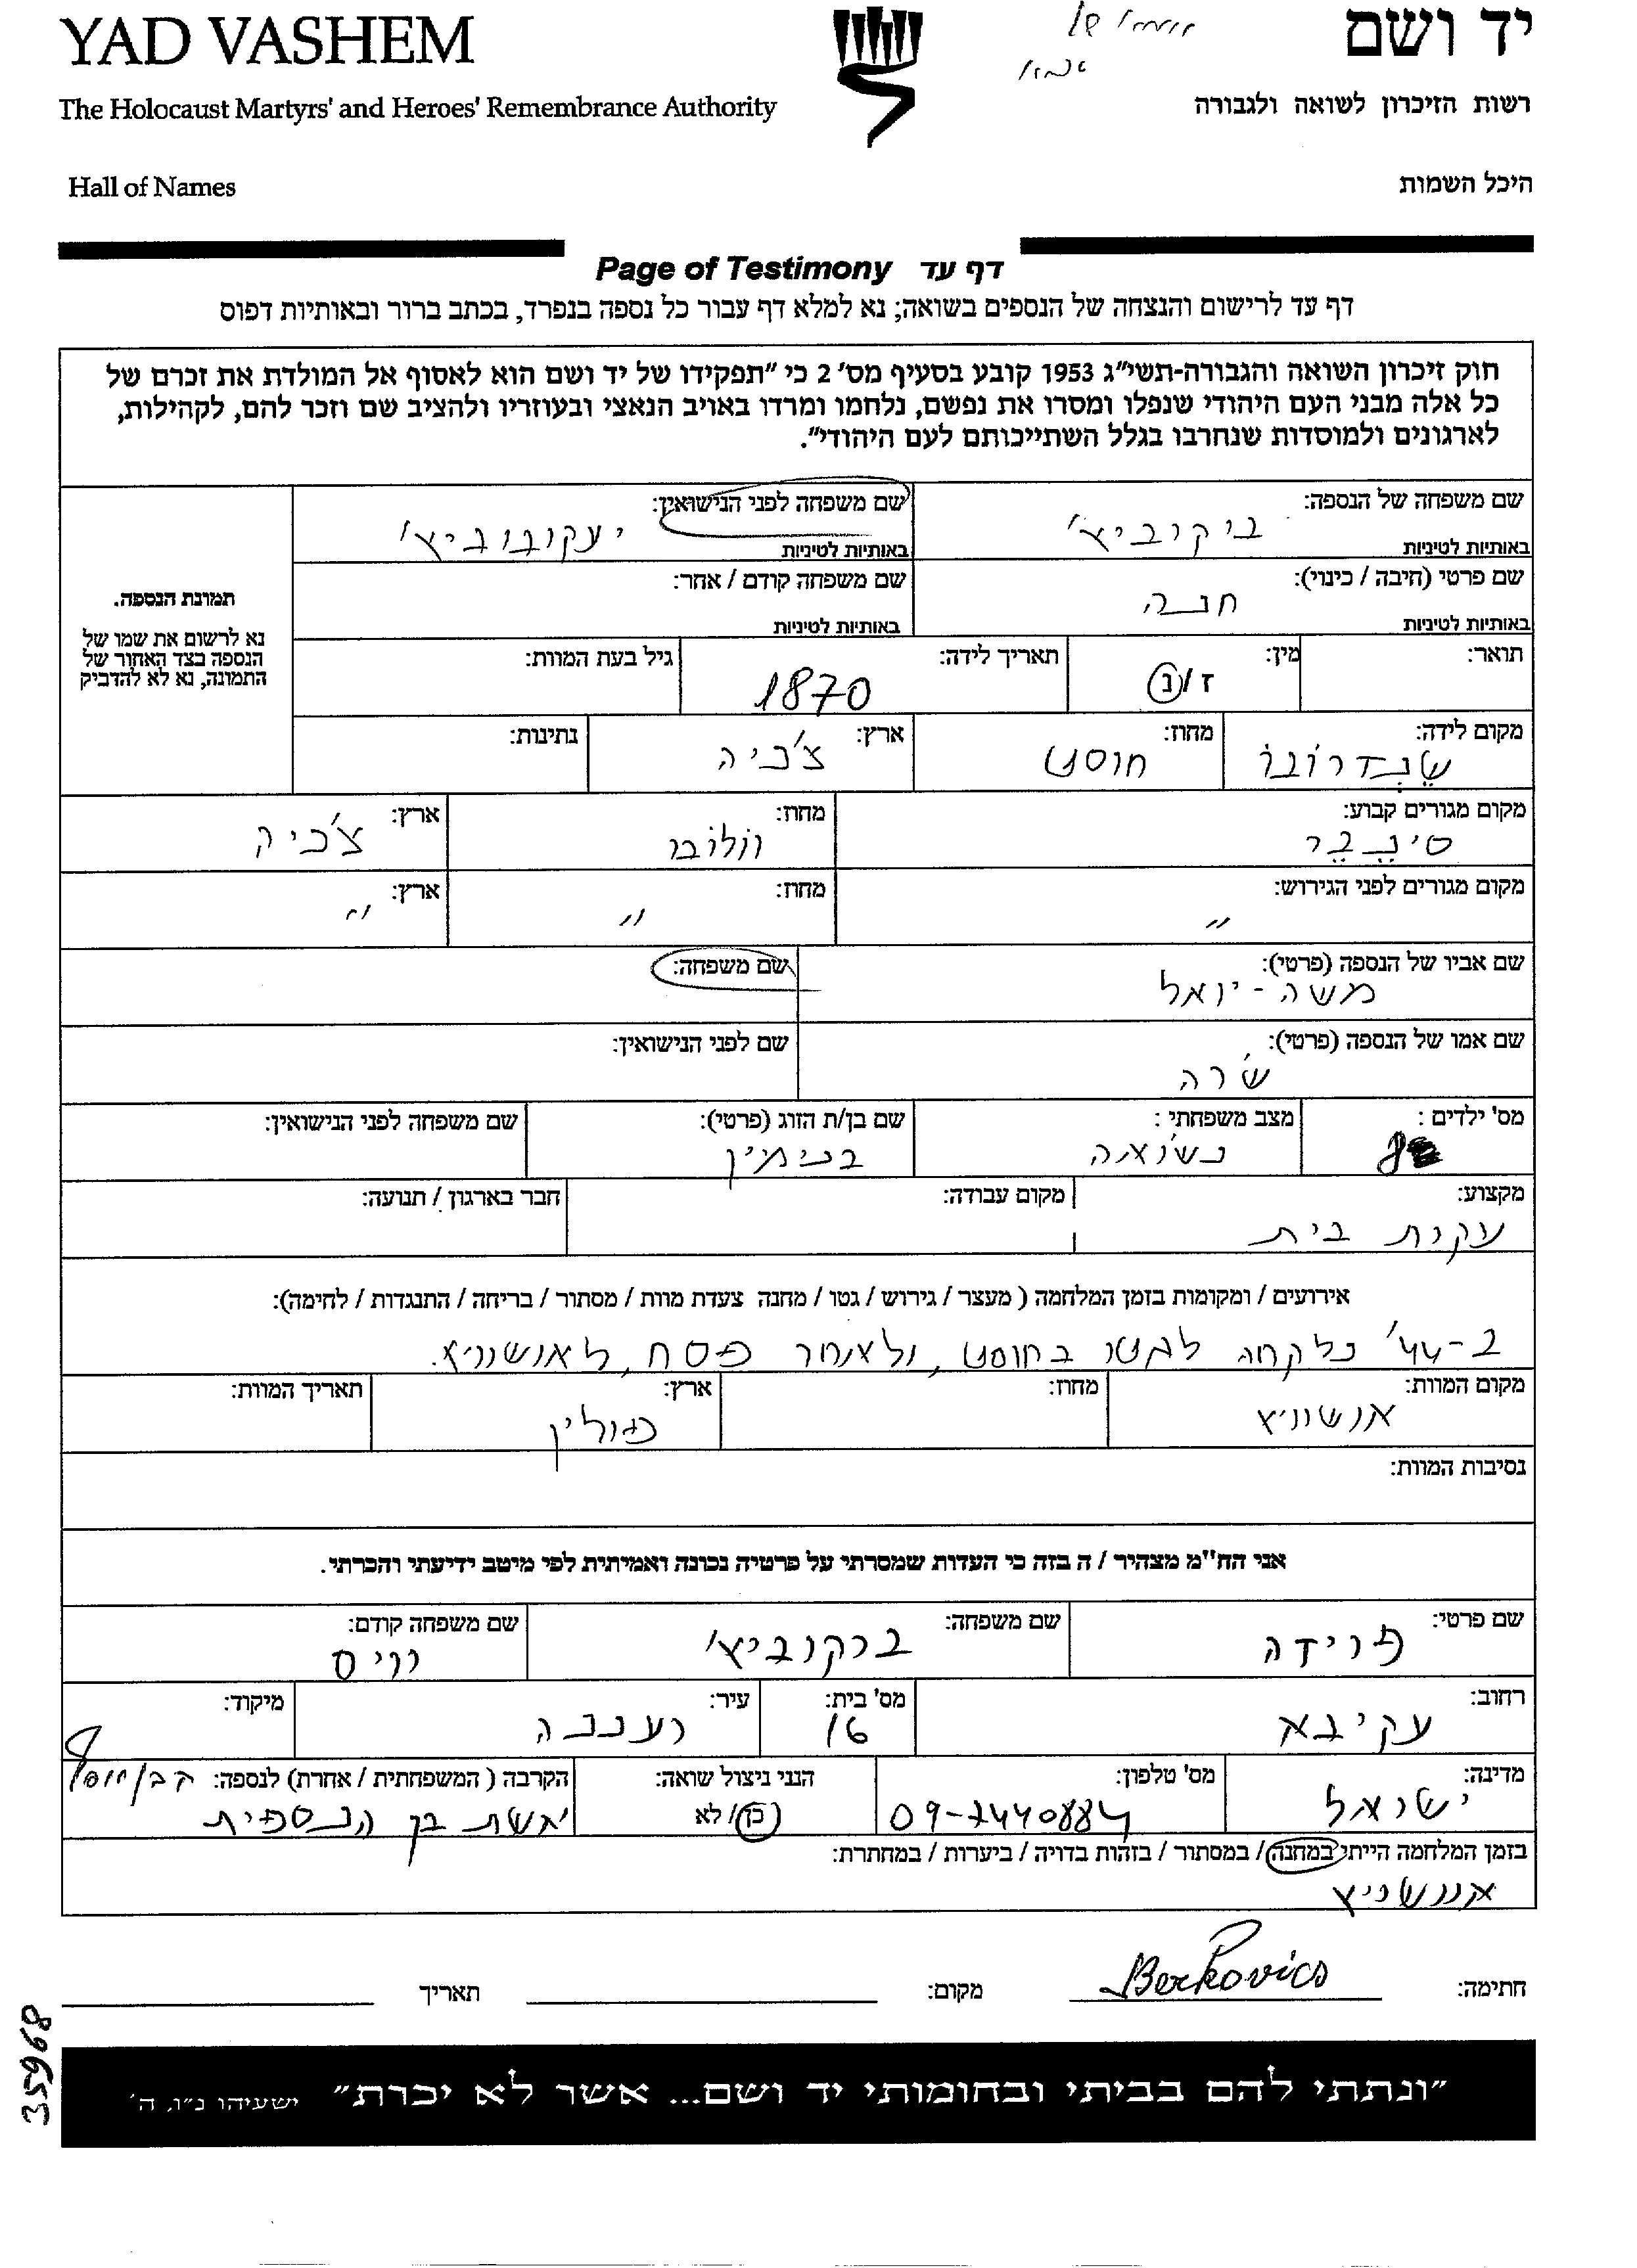 YAD VASHEM
יד ושם
The Holocaust Martyrs' and Heroes' Remembrance Authority
רשות הזיכרון לשואה ולגבורה
Hall of Names
היכל השמות
Page of Testimony דף עד
דף עד לרישום והנצחה של הנספים בשואה; נא למלא דף עבור כל נספה בנפרד, בכתב ברור ובאותיות דפוס
חוק זיכרון השואה והגבורה-תשי"ג 1953 קובע בסעיף מס' 2 כי "תפקידו של יד ושם הוא לאסוף אל המולדת את זכרם של
כל אלה מבני העם היהודי שנפלו ומסרו את נפשם, נלחמו ומרדו באויב הנאצי ובעוזריו ולהציב שם וזכר להם, לקהילות,
לארגונים ולמוסדות שנחרבו בגלל השתייכותם לעם היהודי".
שם משפחה של הנספה: שם משפחה לפני הנישואין:
יעקובוביץ'
באותיות לטיניות באותיות לטיניות
שם פרטי (חיבה / כינוי): חנה שם משפחה קודם / אחר:
באותיות לטיניות באותיות לטיניות
תמונת הנספה.
נא לרשום את שמו של
הנספה בצד האחור של
התמונה, נא לא להדביק
תואר: מין: ז/נ תאריך לידה: 1870 גיל בעת המוות:
מקום לידה: שנדרובו מחוז: חוסט ארץ: צ'כיה נתינות:
מקום מגורים קבוע: סינבר מחוז: וולובו ארץ: צ'כיה
מקום מגורים לפני הגירוש: " מחוז: " ארץ: "
שם אביו של הנספה (פרטי): משה-יואל שם משפחה:
שם אמו של הנספה (פרטי): שרה שם לפני הנישואין:
מס' ילדים: 8 מצב משפחתי: נשואה שם בן/ת הזוג (פרטי): בנימין שם משפחה לפני הנישואין:
מקצוע: עקרת בית מקום עבודה: חבר בארגון / תנועה:
אירועים / ומקומות בזמן המלחמה ( מעצר / גירוש / גטו / מחנה צעדת מוות / מסתור / בריחה / התנגדות / לחימה):
ב-44' נלקחה לגטו בחוסט, ולאחר פסח, לאושוויץ.
מקום המוות: אושוויץ מחוז: ארץ: פולין תאריך המוות:
נסיבות המוות:
אני הח"מ מצהיר / ה בזה כי העדות שמסרתי על פרטיה נכונה ואמיתית לפי מיטב ידיעתי והכרתי.
שם פרטי: פרידה שם משפחה: ברקוביץ' שם משפחה קודם: וייס
רחוב: עקיבא מס' בית: 16 עיר: רעננה מיקוד:
מדינה: ישראל מס' טלפון: 09-7440884 הנני ניצול שואה: כן/לא הקרבה ( המשפחתית / אחרת) לנספה:
אשת בן הנספית
בזמן המלחמה הייתי במחנה / במסתור / בזהות בדויה / ביערות / במחתרת:
אושוויץ
חתימה: Berkovics מקום: תאריך
35968
"ונתתי להם בביתי ובחומותי יד ושם... אשר לא יכרת" ישעיהו נ"ו, ה'